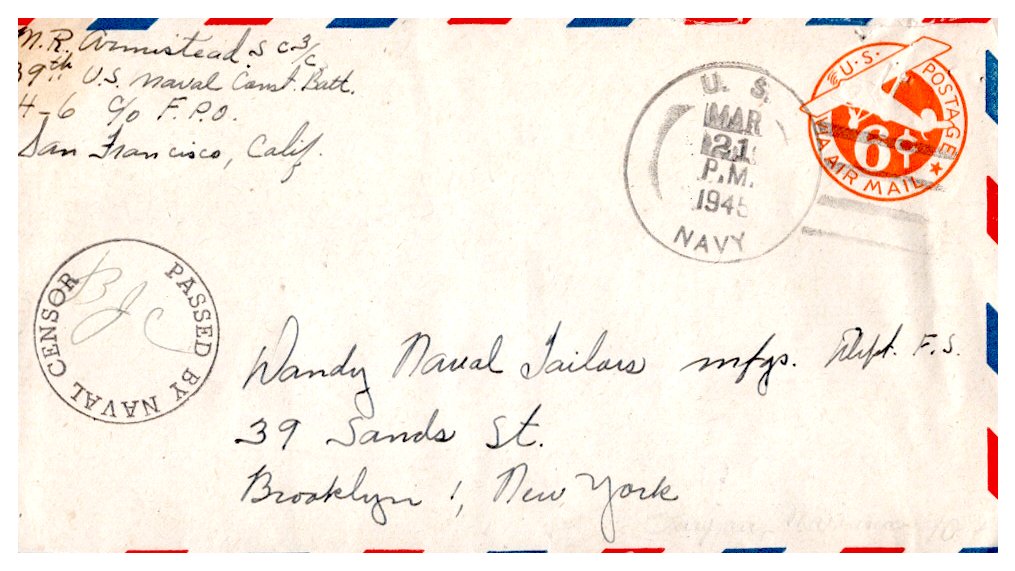 M.R. Armistead S C 3/c
39th U.S. Naval Const. Batt.
4-6 c/o F.P.O.
San Francisco, Calif.
U. S.
MAR
21
P.M.
1945
NAVY
U.S. POSTAGE
6¢
VIA AIR MAIL
PASSED BY NAVAL CENSOR
BJC
Dandy Naval Tailors mfgs. Dept. F.S.
39 Sands St.
Brooklyn, New York